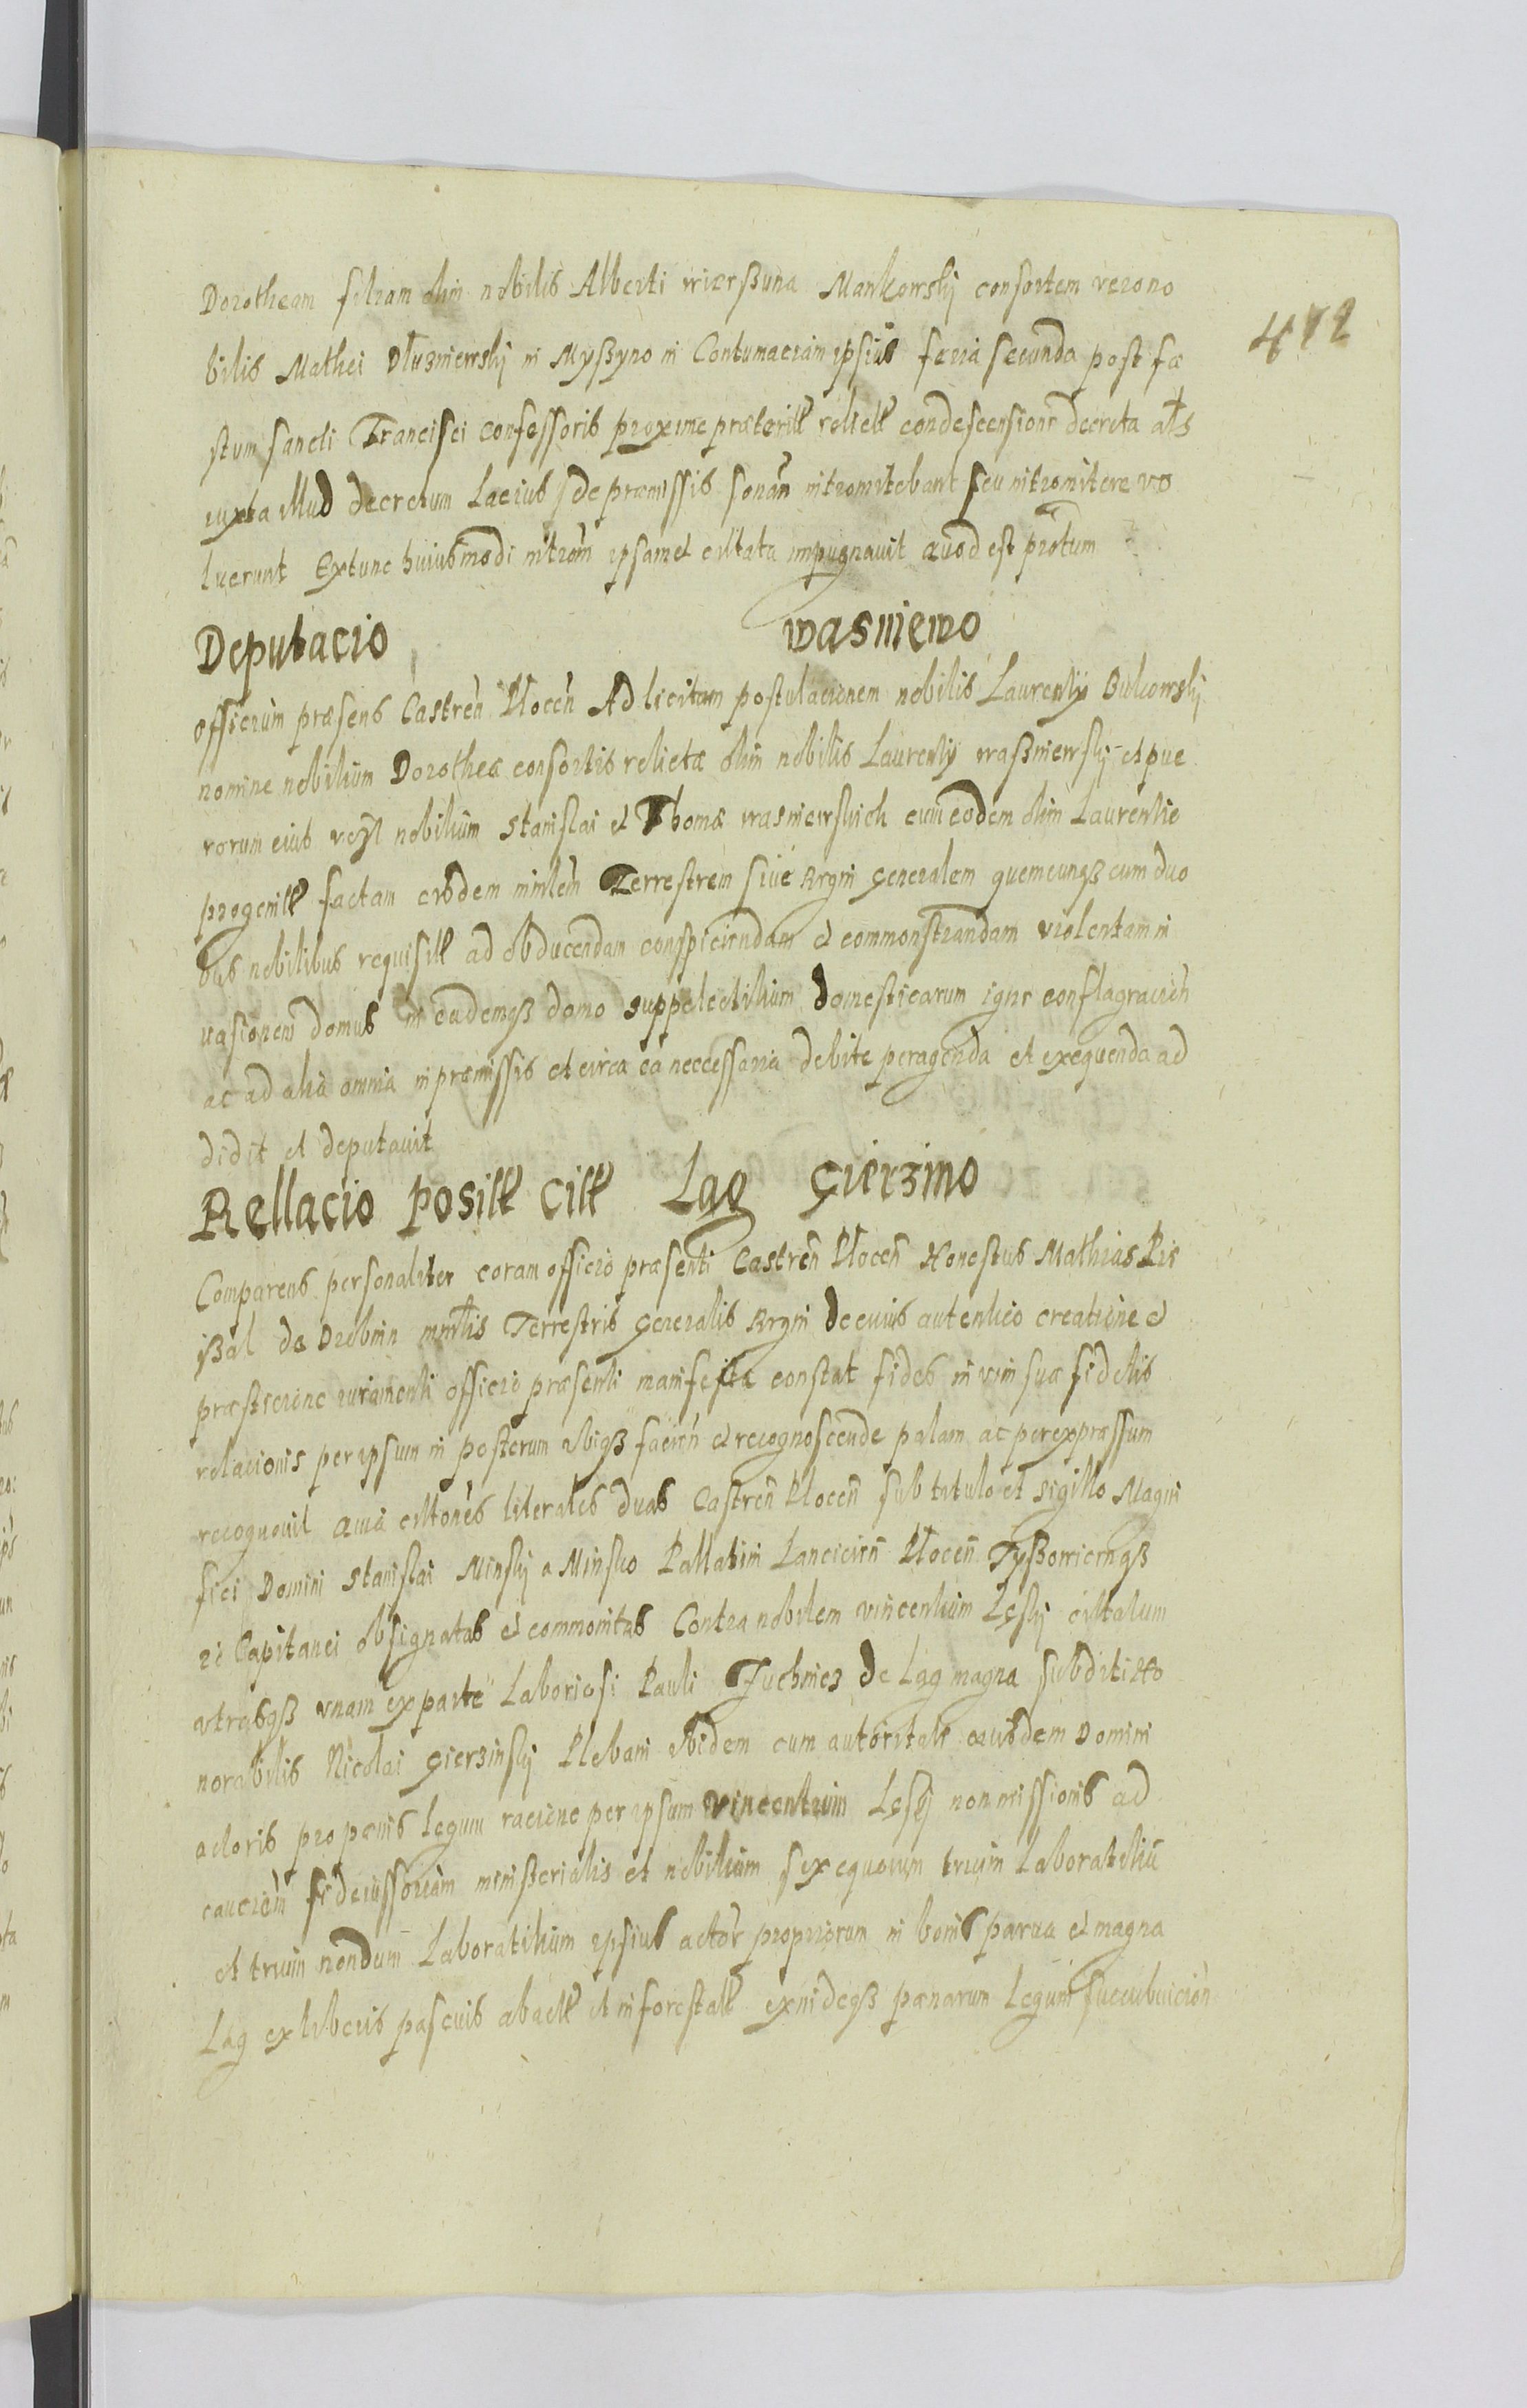 Dorotheam filiam olim nobilis Alberti wierßuna Mankowskij consortem vero no
412
bilis Mathei Dłuzniewskij in Myßyno in Contumaciam ipsius feria secunda post fe
stum sancti Francisci confessoris proxime præterit relict condescensione decreta als
iuxta illud decretum Lacius de præmissis sonan intromitebant seu intromitere vo
luerunt Extunc huiusmodi introm ipsamet citata impugnavit quod est protum
Deputacio wasniewo
officium præsens Castren Płocen Ad licitam postulacionem nobilis Laurentij Bulkowskij
nomine nobilium Dorotheæ consortis relictæ olim nobilis Laurentij waßniewskij et pue
rorum eius nobilium Stanislai et Thomæ wasniewskich cum eodem olim Laurentie
progenit factam eisdem minlem Terrestrem sive Regni Generalem quemcunqß cum duo
bus nobilibus requisit ad obducendam conspiciendam et commonstrandam violentam in
uasionem domus in eademqß domo suppelectilium domesticarum igne conflagracion
ac ad alia omnia in præmissis et circa ea neccessaria debite peragenda et exequenda ad
didit et deputavit
Rellacio Posit Cit Lag Gierzino
Comparens personaliter coram officio præsenti Castren Płocen Honestus Mathias Pis
ßal de Drobnin mntlis Terrestris Generalis Regni de cuius autentico creatione et
præsticione iuramenti officio præsenti manifesta constat fides in vim suæ fidelis
relacionis per ipsum in posterum ubiqß facien et recognoscende palam ac per expræssum
recognouit Quia citones literales duas Castren Płocen sub titulo et sigillo Magni
fici Domini Stanislai Minskij a Minsko Pallatini Lancicien Płocen Tyßowiecnqß
zc Capitanei obsignatas et commonitas Contra nobilem vincentium Leskij citatum
utrasqß unam ex parte Laboriosi Pauli Juchniez de Lag magna subditi Ho
norabilis Nicolai Gierzinskij Plebani ibidem cum autoritate eiusdem Domini
actoris pro pænis legum racione per ipsum vincentium Leskij non missionis ad
cauciem fideiussoriam ministerialis et nobilium sex equorum trium Laboratiliu
et trium nondum Laboratilium ipsius actor propriorum in bonis parua et magna
Lag ex liberis pascuis abact et inforestat exindeqß pænarum Legum succubuicion